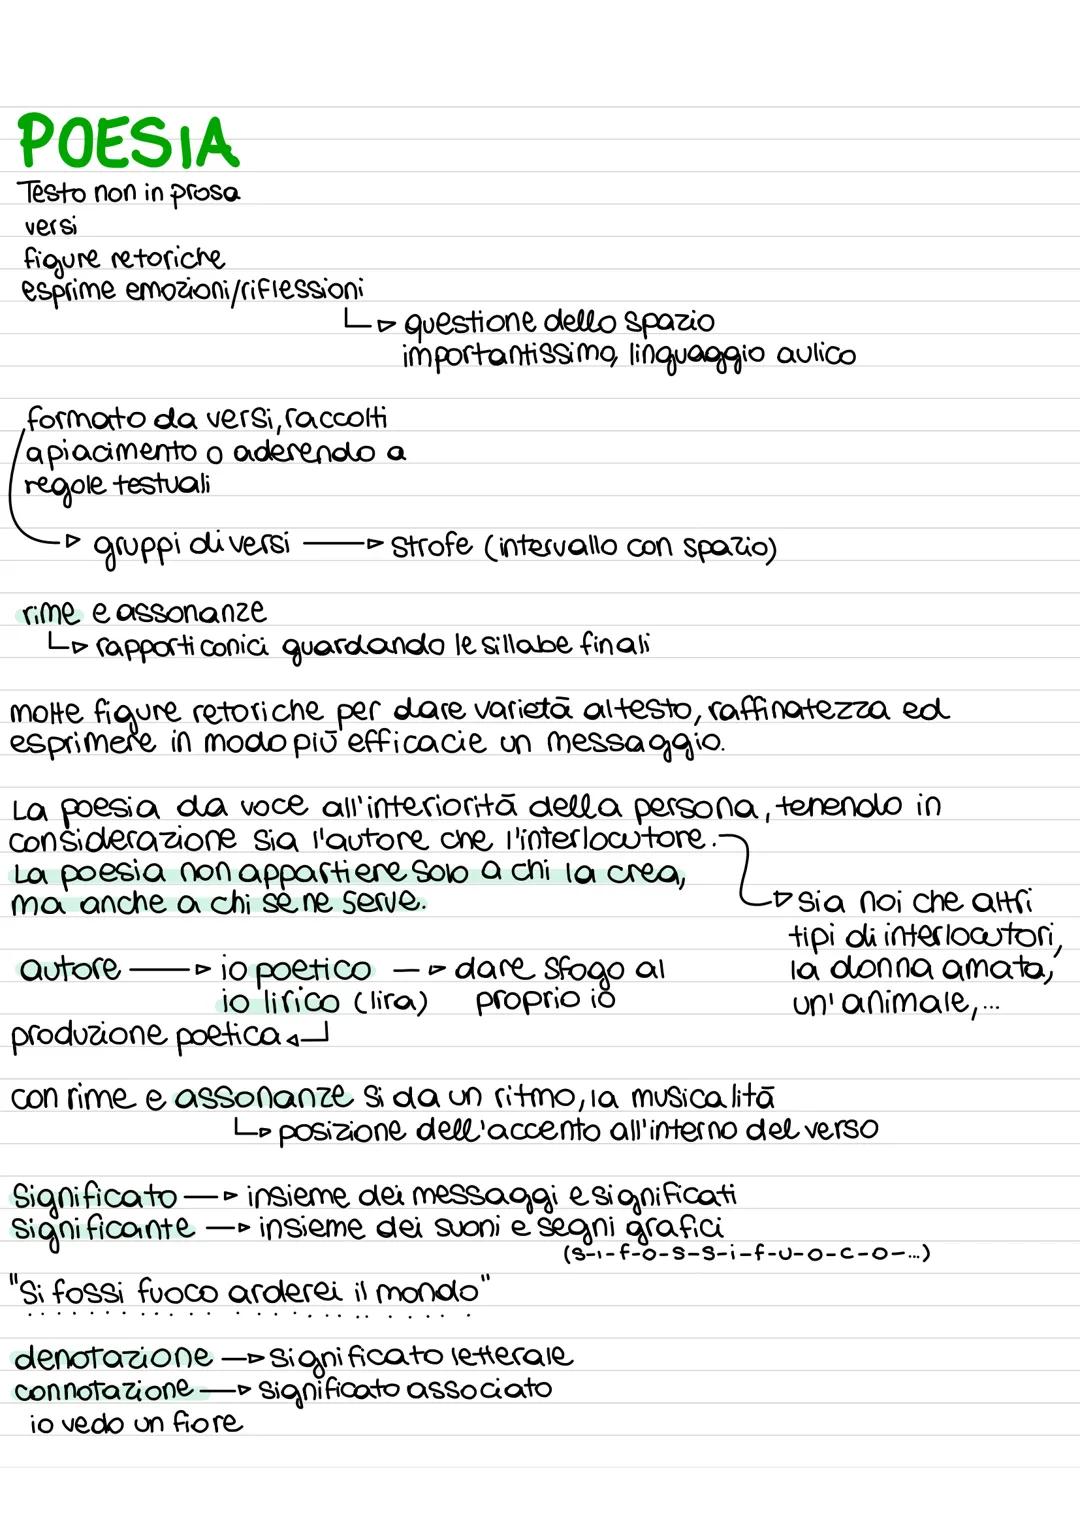 POESIA
Testo non in prosa
versi
figure retoriche
esprime emozioni/riflessioni
questione dello spazio
importantissimo, linguaggio aulico
formato da versi, raccolti
a piacimento o aderendo a
regole testuali
gruppi di versi → strofe (intervallo con spazio)
rime e assonanze
rapporti conici guardando le sillabe finali
molte figure retoriche per dare varietà al testo, raffinatezza ed
esprimere in modo più efficacie un messaggio.
La poesia da voce all'interiorità della persona, tenendo in
considerazione sia l'autore che l'interlocutore.
La poesia non appartiere solo a chi la crea,
ma anche a chi se ne serve.
sia noi che altri
tipi di interlocutori,
la donna amata,
un' animale,...
autore → io poetico → dare sfogo al
io lirico (lira) proprio io
produzione poetica
con rime e assonanze si da un ritmo, la musicalità
posizione dell'accento all'interno del verso
Significato → insieme dei messaggi e significati
significante → insieme dei suoni e segni grafici
(s-i-f-o-s-s-i-f-u-o-c-o-...)
"Si fossi fuoco arderei il mondo"
denotazione → significato letterale
connotazione → significato associato
io vedo un fiore